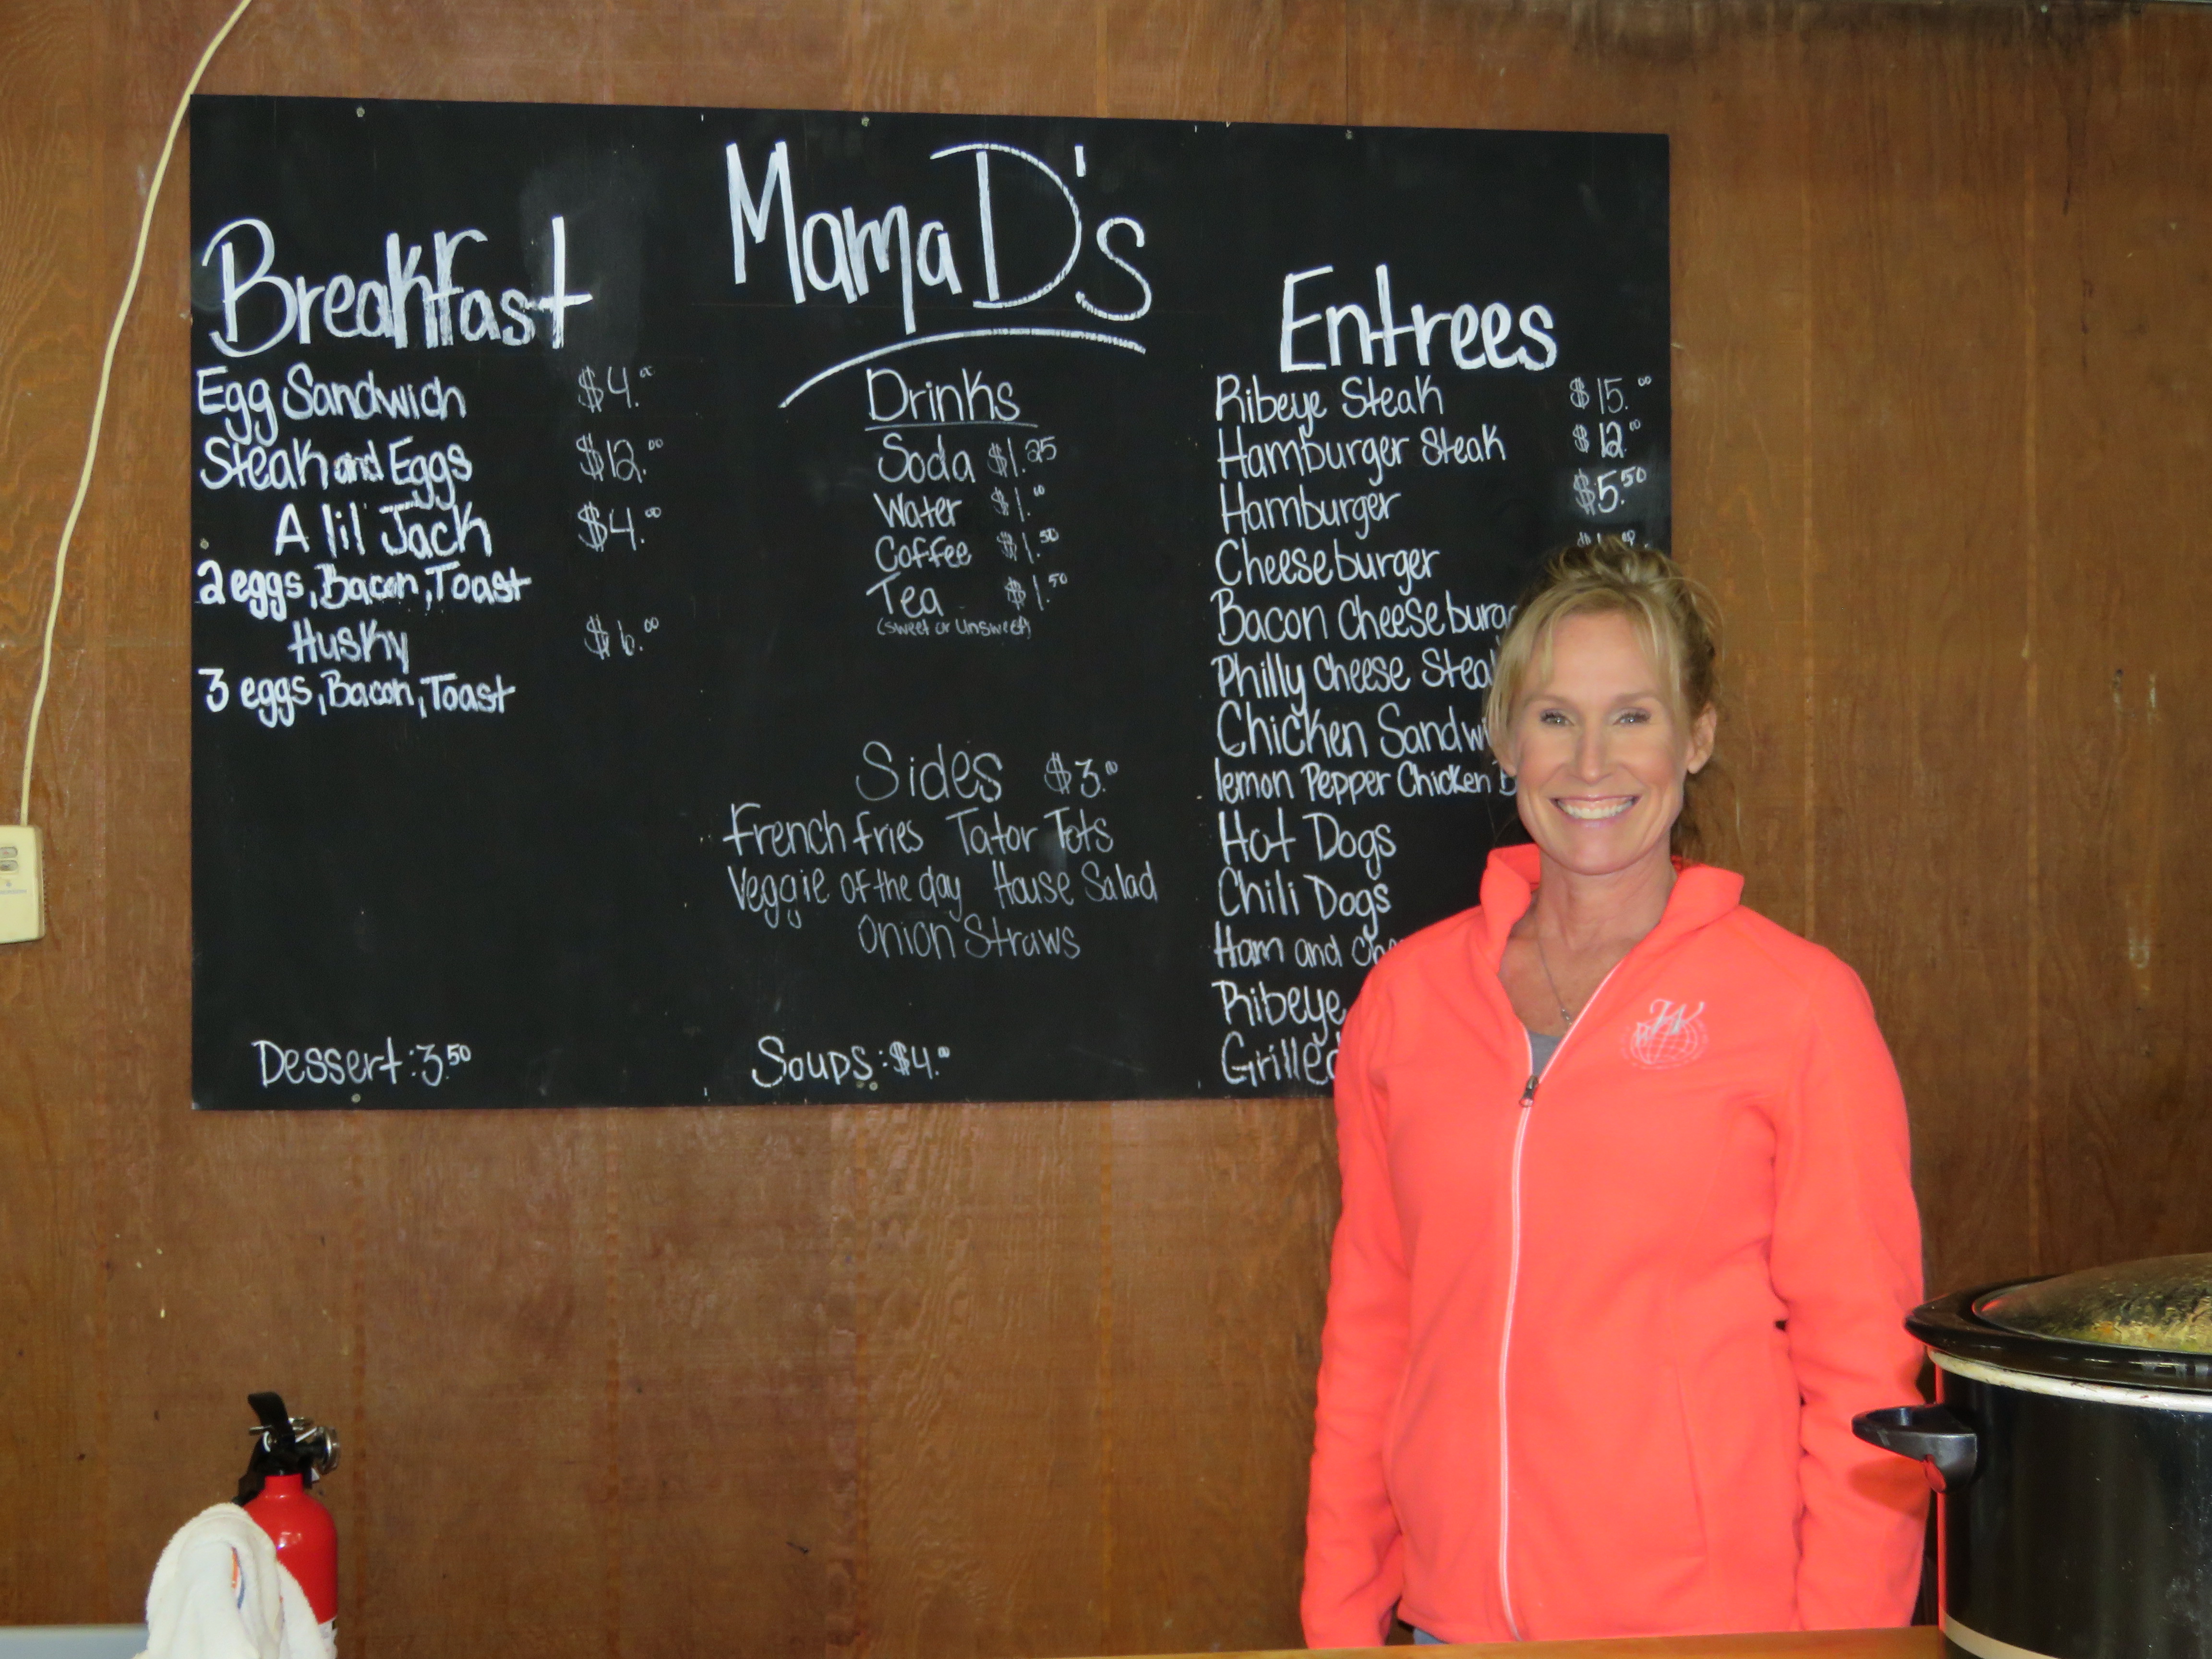 Mama D's
Breakfast
Egg Sandwich $4.00
Steak and Eggs $12.00
A lil Jack $4.00
2 eggs, Bacon, Toast
Husky $6.00
3 eggs, Bacon, Toast
Dessert: 3.50
Drinks
Soda $1.25
Water $1.00
Coffee $1.50
Tea $1.50
(sweet or unsweet)
Sides $3.00
French fries Tator Tots
Veggie of the day House Salad
Onion Straws
Soups: $4.00
Entrees
Ribeye Steak $15.00
Hamburger Steak $12.00
Hamburger $5.50
Cheeseburger
Bacon Cheeseburg
Philly Cheese Stea
Chicken Sandw
lemon Pepper Chicken B
Hot Dogs
Chili Dogs
Ham and Che
Ribeye
Grilled